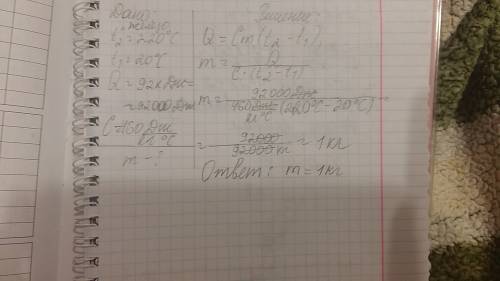 Дано:
железо
t₂ = 220°C
t₁ = 20°C
Q = 92кДж =
= 92000Дж
C = 460 Дж
кг °C
m - ?
Решение:
Q = Cm(t₂ - t₁),
m = Q
C · (t₂ - t₁)
m = 92000 Дж =
460 Дж (220°C - 20°C)
кг °C
= 92000 = 1 кг
92000
Ответ: m = 1 кг